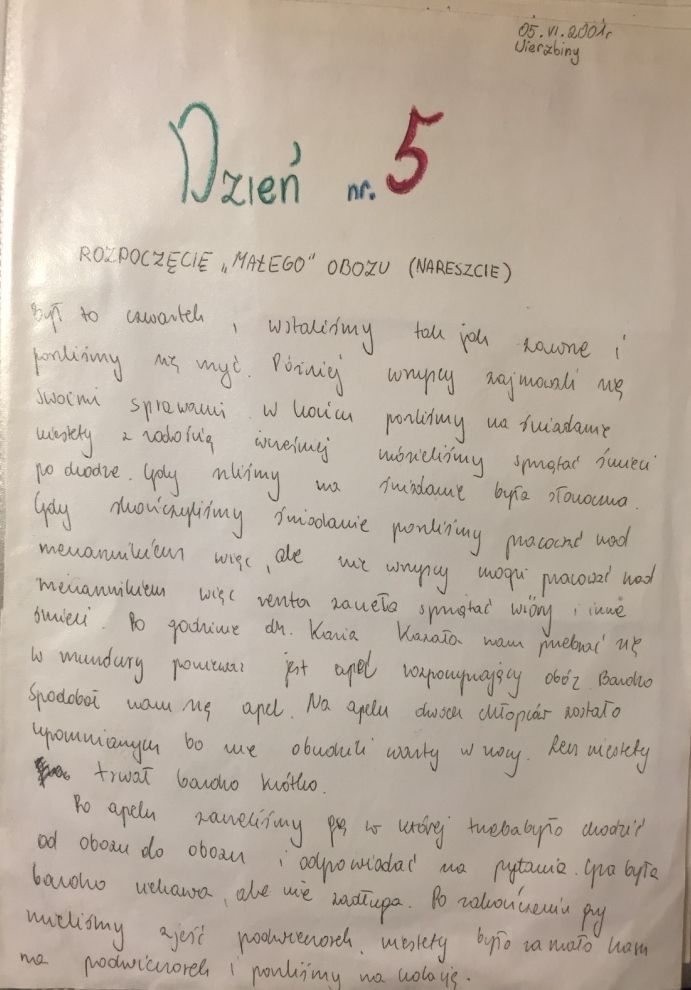 05.VI.2001r
Wierzbiny
Dzień nr. 5
ROZPOCZĘCIE „MAŁEGO" OBOZU (NARESZCIE)
Był to czwartek, wstaliśmy tak jak zawsze i
poszliśmy się myć. Później wszyscy zajmowali się
swoimi sprawami. w końcu poszliśmy na śniadanie
niestety z radością wcześniej musieliśmy sprzątać śmieci
po drodze. Gdy szliśmy na śniadanie była słoneczna.
Gdy skończyliśmy śniadanie poszliśmy pracować nad
mechannikiem więc, ale nie wszyscy mogli pracować nad
mechannikiem więc reszta zaczęła sprzątać wióry i inne
śmieci. Po godzinie dh. Kasia Kazała nam przebrać się
w mundury ponieważ jest apel rozpoczynający obóz. Bardzo
spodobał nam się apel. Na apelu dwóch chłopców zostało
upomnianych bo nie obudzili warty w nocy. Lecz niestety
trwał bardzo krótko.
Po apelu zaczeliśmy grę w której trzebabyło chodzić
od obozu do obozu i odpowiadać na pytania. Gra była
bardzo ciekawa, ale nie zadługa. Po zakończeniu gry
mieliśmy zjeść podwieczorek, niestety było za mało nam
na podwieczorek i poszliśmy na kolację.